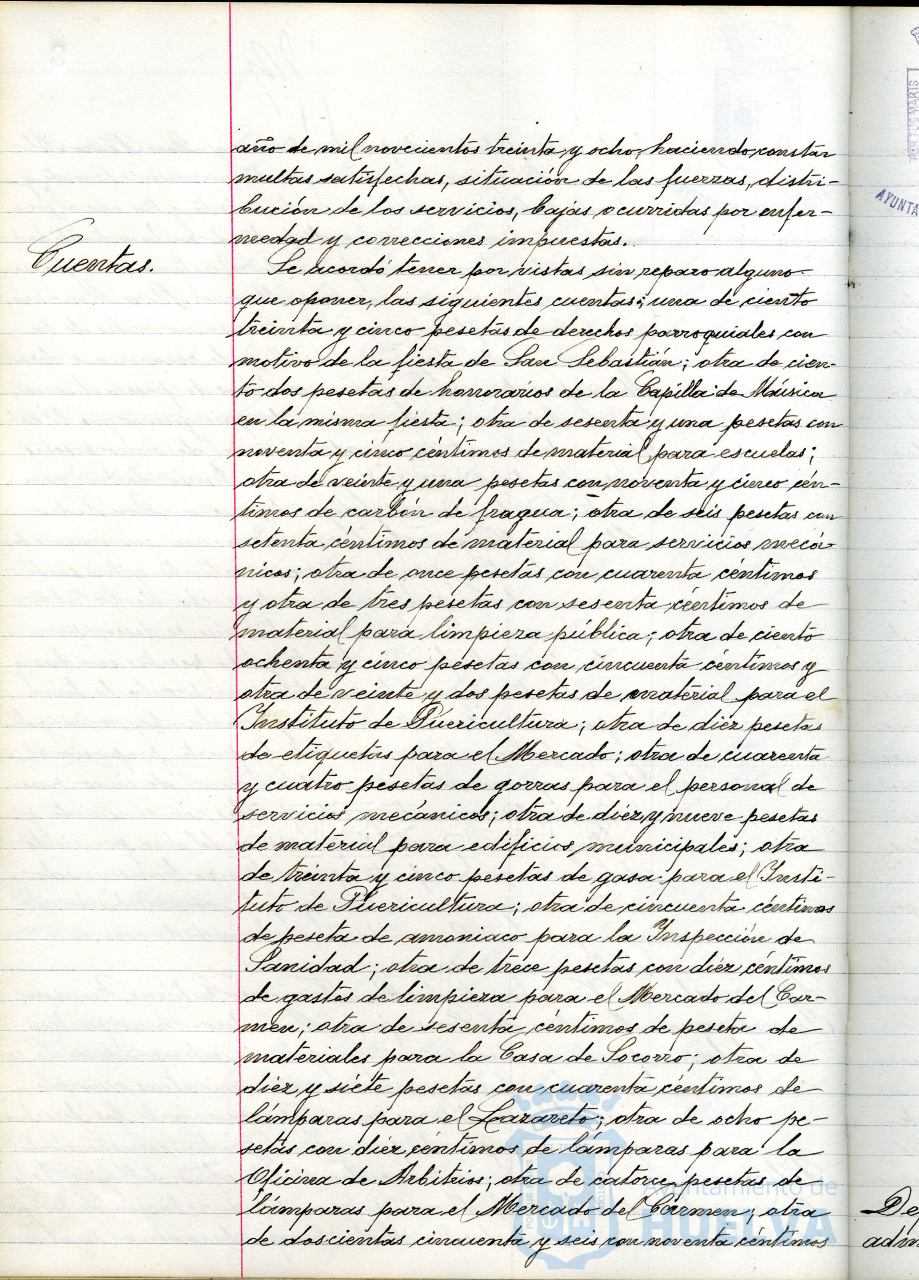 año de mil novecientos treinta y ocho, haciendo constar
multas satisfechas, situación de las fuerzas, distri-
bución de los servicios, bajas ocurridas por enfer-
medad y correcciones impuestas.
Cuentas.
Se acordó tener por vistas sin reparo alguno
que oponer, las siguientes cuentas; una de ciento
treinta y cinco pesetas de derechos parroquiales con
motivo de la fiesta de San Sebastián; otra de cien-
to dos pesetas de honorarios de la Capilla de Música
en la misma fiesta; otra de sesenta y una pesetas con
noventa y cinco céntimos de material para escuelas;
otra de veinte y una pesetas con noventa y cinco cén-
timos de carbón de fragua; otra de seis pesetas con
setenta céntimos de material para servicios mecá-
nicos; otra de once pesetas con cuarenta céntimos
y otra de tres pesetas con sesenta céntimos de
material para limpieza pública; otra de ciento
ochenta y cinco pesetas con cincuenta céntimos y
otra de veinte y dos pesetas de material para el
Instituto de Puericultura; otra de diéz pesetas
de etiquetas para el Mercado; otra de cuarenta
y cuatro pesetas de gorras para el personal de
servicios mecánicos; otra de diéz y nueve pesetas
de material para edificios municipales; otra
de treinta y cinco pesetas de gasa para el Insti-
tuto de Puericultura; otra de cincuenta céntimos
de peseta de amoniaco para la Inspección de
Sanidad; otra de trece pesetas con diéz céntimos
de gastos de limpieza para el Mercado del Car-
men; otra de sesenta céntimos de peseta de
materiales para la Casa de Socorro; otra de
diéz y siete pesetas con cuarenta céntimos de
lámparas para el Lazareto; otra de ocho pe-
setas con diéz céntimos de lámparas para la
Oficina de Arbitrios; otra de catorce pesetas de
lámparas para el Mercado del Carmen; otra
de doscientas cincuenta y seis con noventa céntimos
Ayuntamiento de
HUELVA
AYUNTA
De
adm